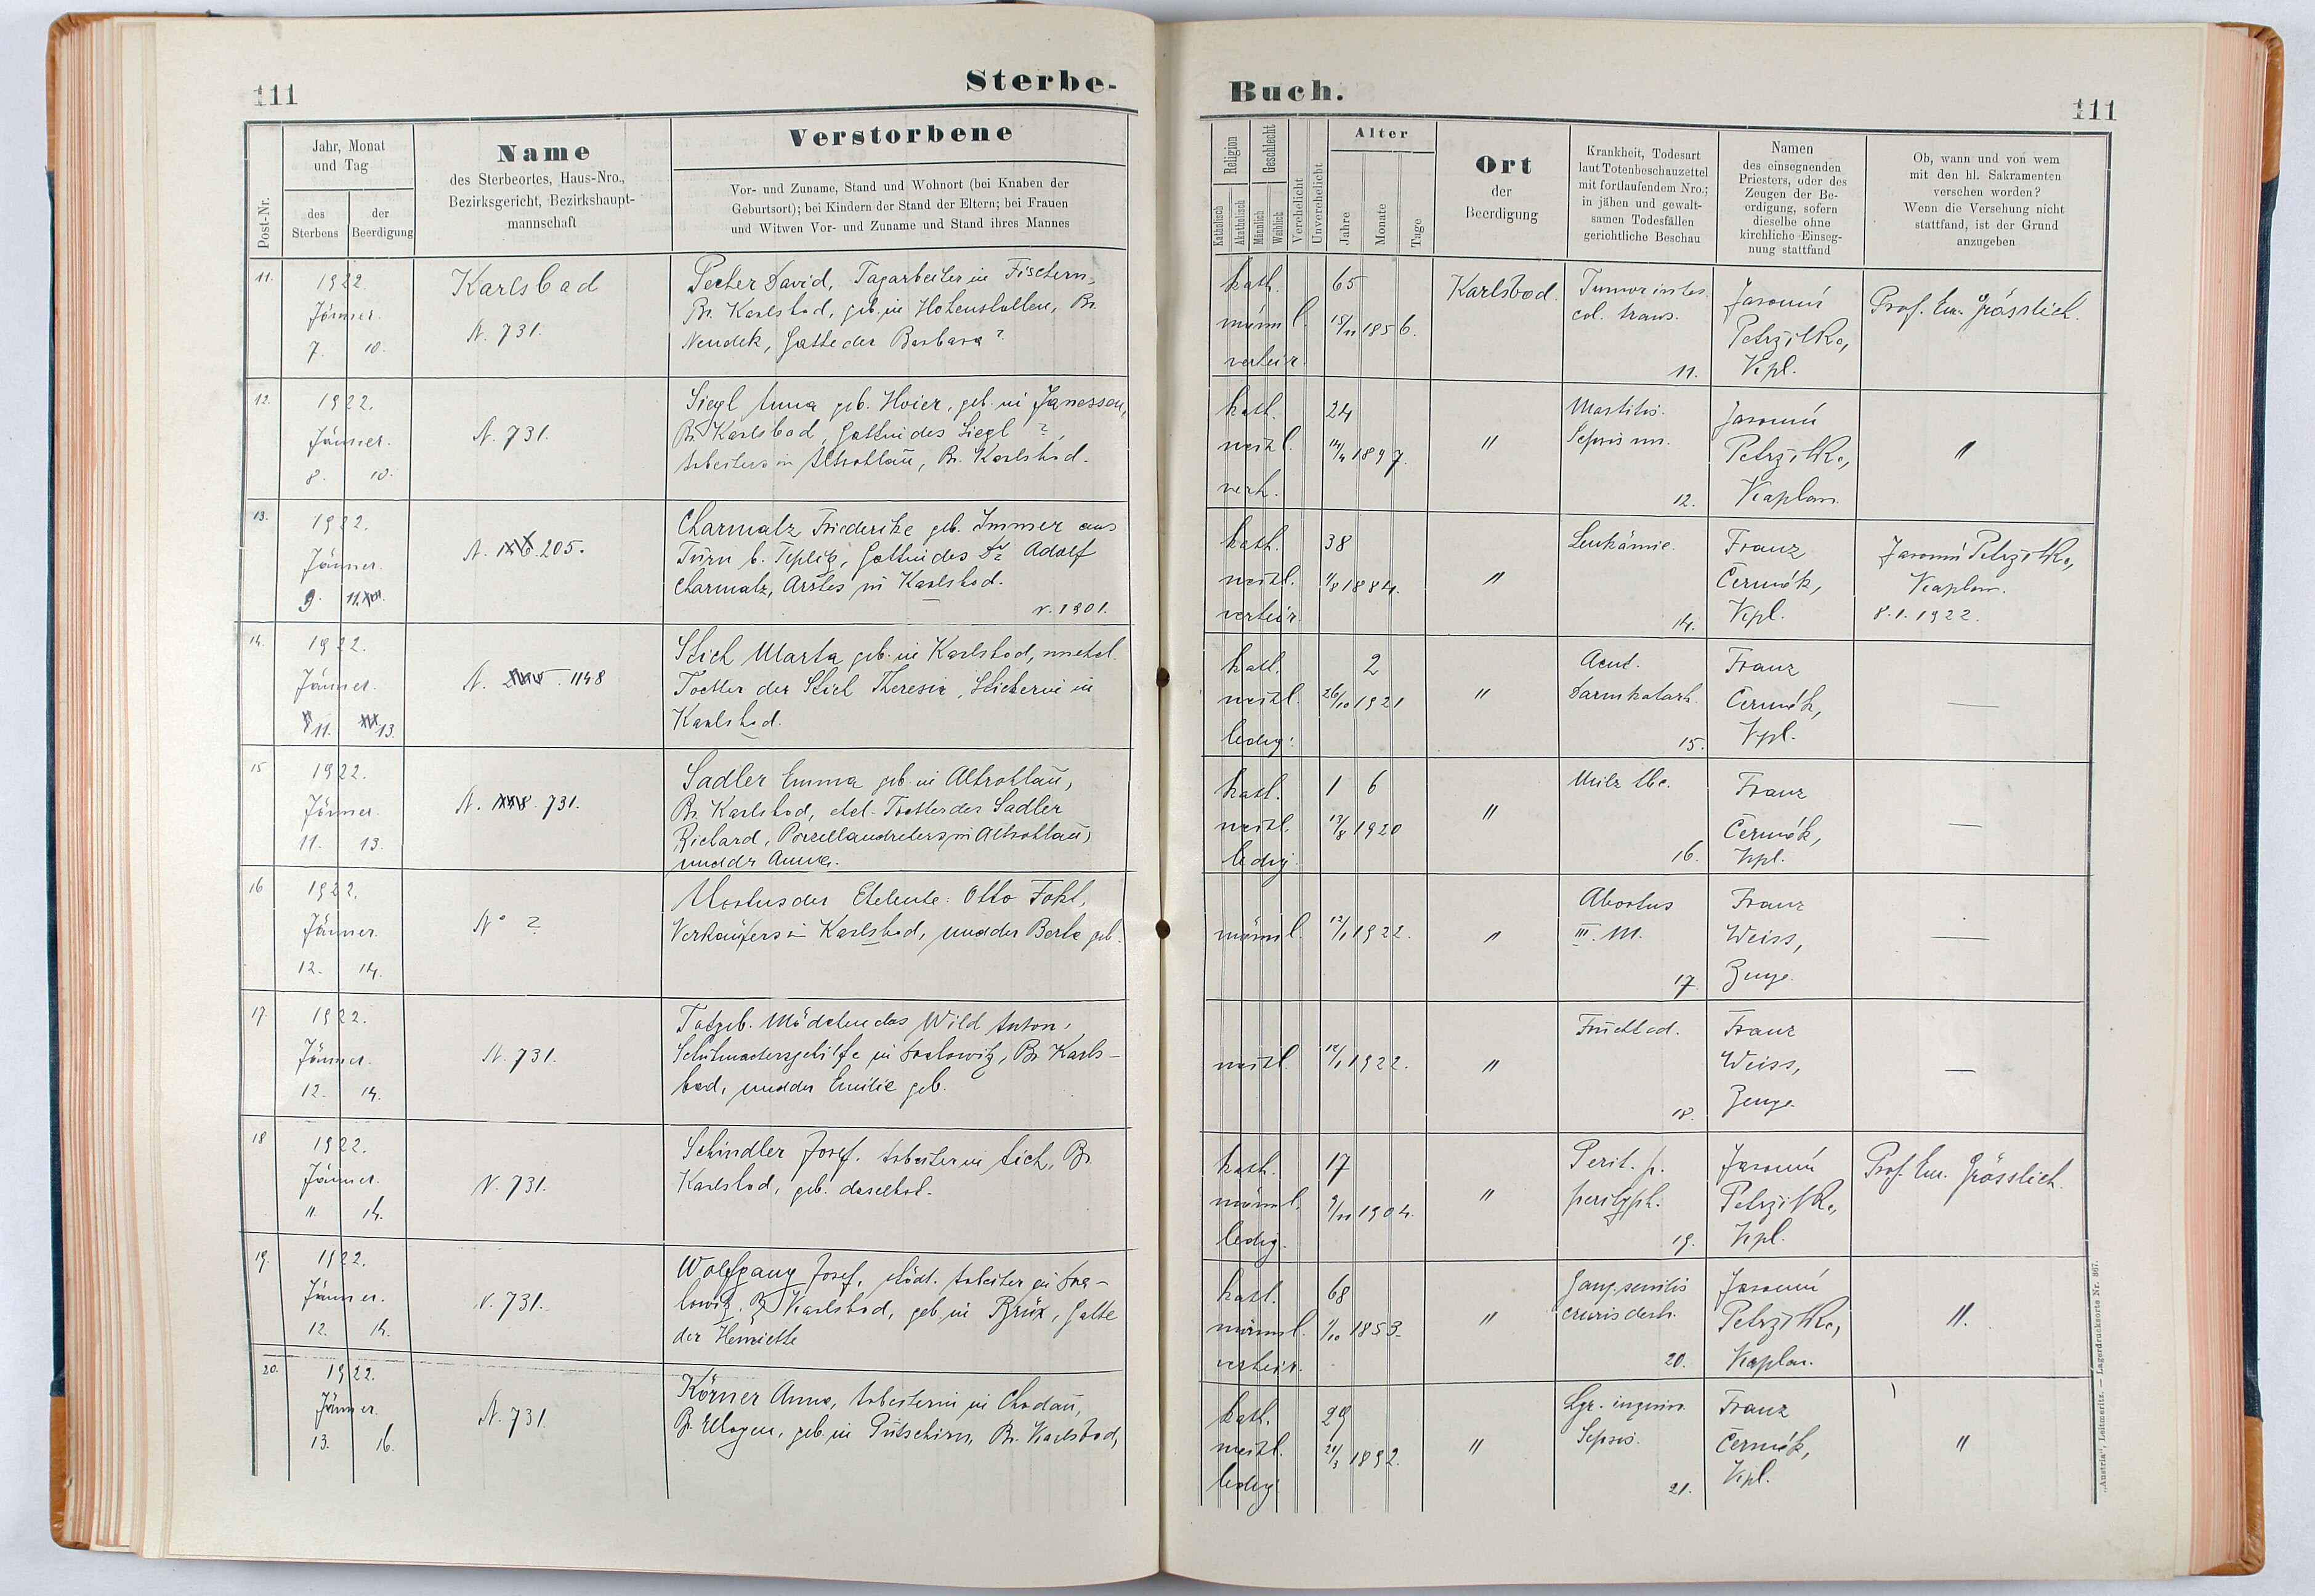 111
Sterbe-
Post-Nr.
Jahr, Monat
und Tag
des
Sterbens
der
Beerdigung
Name
des Sterbeortes, Haus-Nro.,
Bezirksgericht, Bezirkshaupt-
mannschaft
Verstorbene
Vor- und Zuname, Stand und Wohnort (bei Knaben der
Geburtsort); bei Kindern der Stand der Eltern; bei Frauen
und Witwen Vor- und Zuname und Stand ihres Mannes
11.
1922.
Jänner.
7. 10.
Karlsbad
N. 731.
Pecher David, Tagarbeiter in Fischern,
Bz. Karlsbad, geb. in Hohenstollen, Bz.
Neudek, Gatte der Barbara ?
12.
1922.
Jänner.
8. 10.
N. 731.
Siegl Anna geb. Hoier, geb. in Janessen,
Bz. Karlsbad, Gattin des Siegl ?,
Arbeiters in Altrohlau, Bz. Karlsbad.
13.
1922.
Jänner.
9. 11.
N. 205.
Charmatz Friederike geb. Immer aus
Turn b. Teplitz, Gattin des Dr Adolf
Charmatz, Arztes in Karlsbad.
v. 1901.
14.
1922.
Jänner.
11. 13.
N. 1148
Stich Marta geb. in Karlsbad, unehel.
Tochter der Stich Theresia, Stickerin in
Karlsbad.
15
1922.
Jänner.
11. 13.
N. 731.
Sadler Emma geb. in Altrohlau,
Bz. Karlsbad, ehel. Tochter des Sadler
Richard, Porzellandrehers in Altrohlau,
und der Anna.
16
1922.
Jänner.
12. 14.
N° ?
Mortus der Eheleute: Otto Fokl,
Verkäufers in Karlsbad, und der Berta geb.
17.
1922.
Jänner.
12. 14.
N. 731.
Totgeb. Mädchen das Wild Anton,
Schuhmachersgehilfe in Drahowitz, Bz. Karls-
bad, und der Emilie geb.
18
1922.
Jänner.
11. 14.
N. 731.
Schindler Josef. Arbeiter in Aich, Bz.
Karlsbad, geb. daselbst.
19.
1922.
Jänner.
12. 14.
N. 731.
Wolfgang Josef, städt. Arbeiter in Dra-
howitz, Bz. Karlsbad, geb. in Brüx, Gatte
der Henriette
20.
1922.
Jänner.
13. 16.
N. 731
Körner Anna, Arbeiterin in Chodau,
Bz. Elbogen, geb. in Putschirn, Bz. Karlsbad,
Buch.
111
Religion
Katholisch
Akatholisch
Geschlecht
Männlich
Weiblich
Verehelicht
Unverehelicht
Alter
Jahre
Monate
Tage
Ort
der
Beerdigung
Krankheit, Todesart
laut Totenbeschauzettel
mit fortlaufendem Nro.;
in jähen und gewalt-
samen Todesfällen
gerichtliche Beschau
Namen
des einsegnenden
Priesters, oder des
Zeugen der Be-
erdigung, sofern
dieselbe ohne
kirchliche Einseg-
nung stattfand
Ob, wann und von wem
mit den hl. Sakramenten
versehen worden?
Wenn die Versehung nicht
stattfand, ist der Grund
anzugeben
kath.
männl.
verheir.
65
15/11 1856.
Karlsbad.
Tumor intes.
col. trans.
11.
Jaromír
Petrzilka,
Kpl.
Prof. Em. Grösslich.
kath.
weibl.
verh.
24
14/4 1897.
"
Mastitis.
Sepsis
12.
Jaromír
Petrzilka,
Kaplan.
"
kath.
weibl.
verheir.
38
1/8 1884.
"
Leukämie.
14.
Franz
Čermák,
Kpl.
Jaromír Petrzilka,
Kaplan.
8.1.1922.
kath.
weibl.
ledig.
2
26/10 1921
"
Acut.
Darmkatarh.
15.
Franz
Čermák,
Kpl.
—
kath.
weibl.
ledig.
1 6
13/8 1920
"
Milz tbc.
16.
Franz
Čermák,
Kpl.
—
männl.
12/1 1922.
"
Abortus
III. M.
17
Franz
Weiss,
Zeuge.
—
weibl.
12/1 1922.
"
Fruchttod.
18.
Franz
Weiss,
Zeuge.
—
kath.
männl.
ledig.
17
9/11 1904.
"
Perit. p.
perityph.
19.
Jaromír
Petrzilka,
Kpl.
Prof. Em. Grösslich.
kath.
männl.
verheir.
68
1/10 1853.
"
Gang. senilis
cruris dextr.
20.
Jaromír
Petrzilka,
Kaplan.
".
kath.
weibl.
ledig
29
21/3 1892.
"
Sepsis.
21.
Franz
Čermák,
Kpl.
"
„Austria“, Leitmeritz. — Lagerdrucksorte Nr. 367.